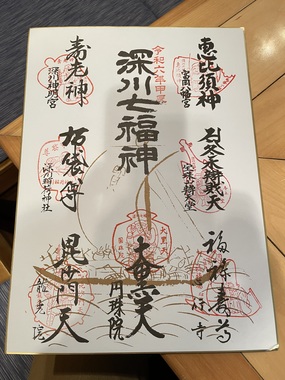 恵比須神
富岡八幡宮
弁財天
冬木弁天堂
福禄寿尊
心行寺
令和六年甲辰
深川七福神
大黒天
円珠院
寿老神
深川神明宮
布袋尊
深川稲荷神社
毘沙門天
龍光院